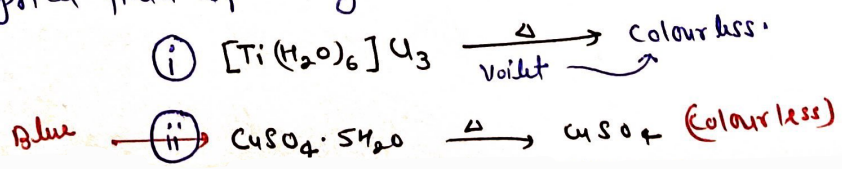 (i) [Ti(H₂O)₆]Cl₃ —Δ→ Colourless.
Voilet
Blue → (ii) CuSO₄·5H₂O —Δ→ CuSO₄ (Colourless)